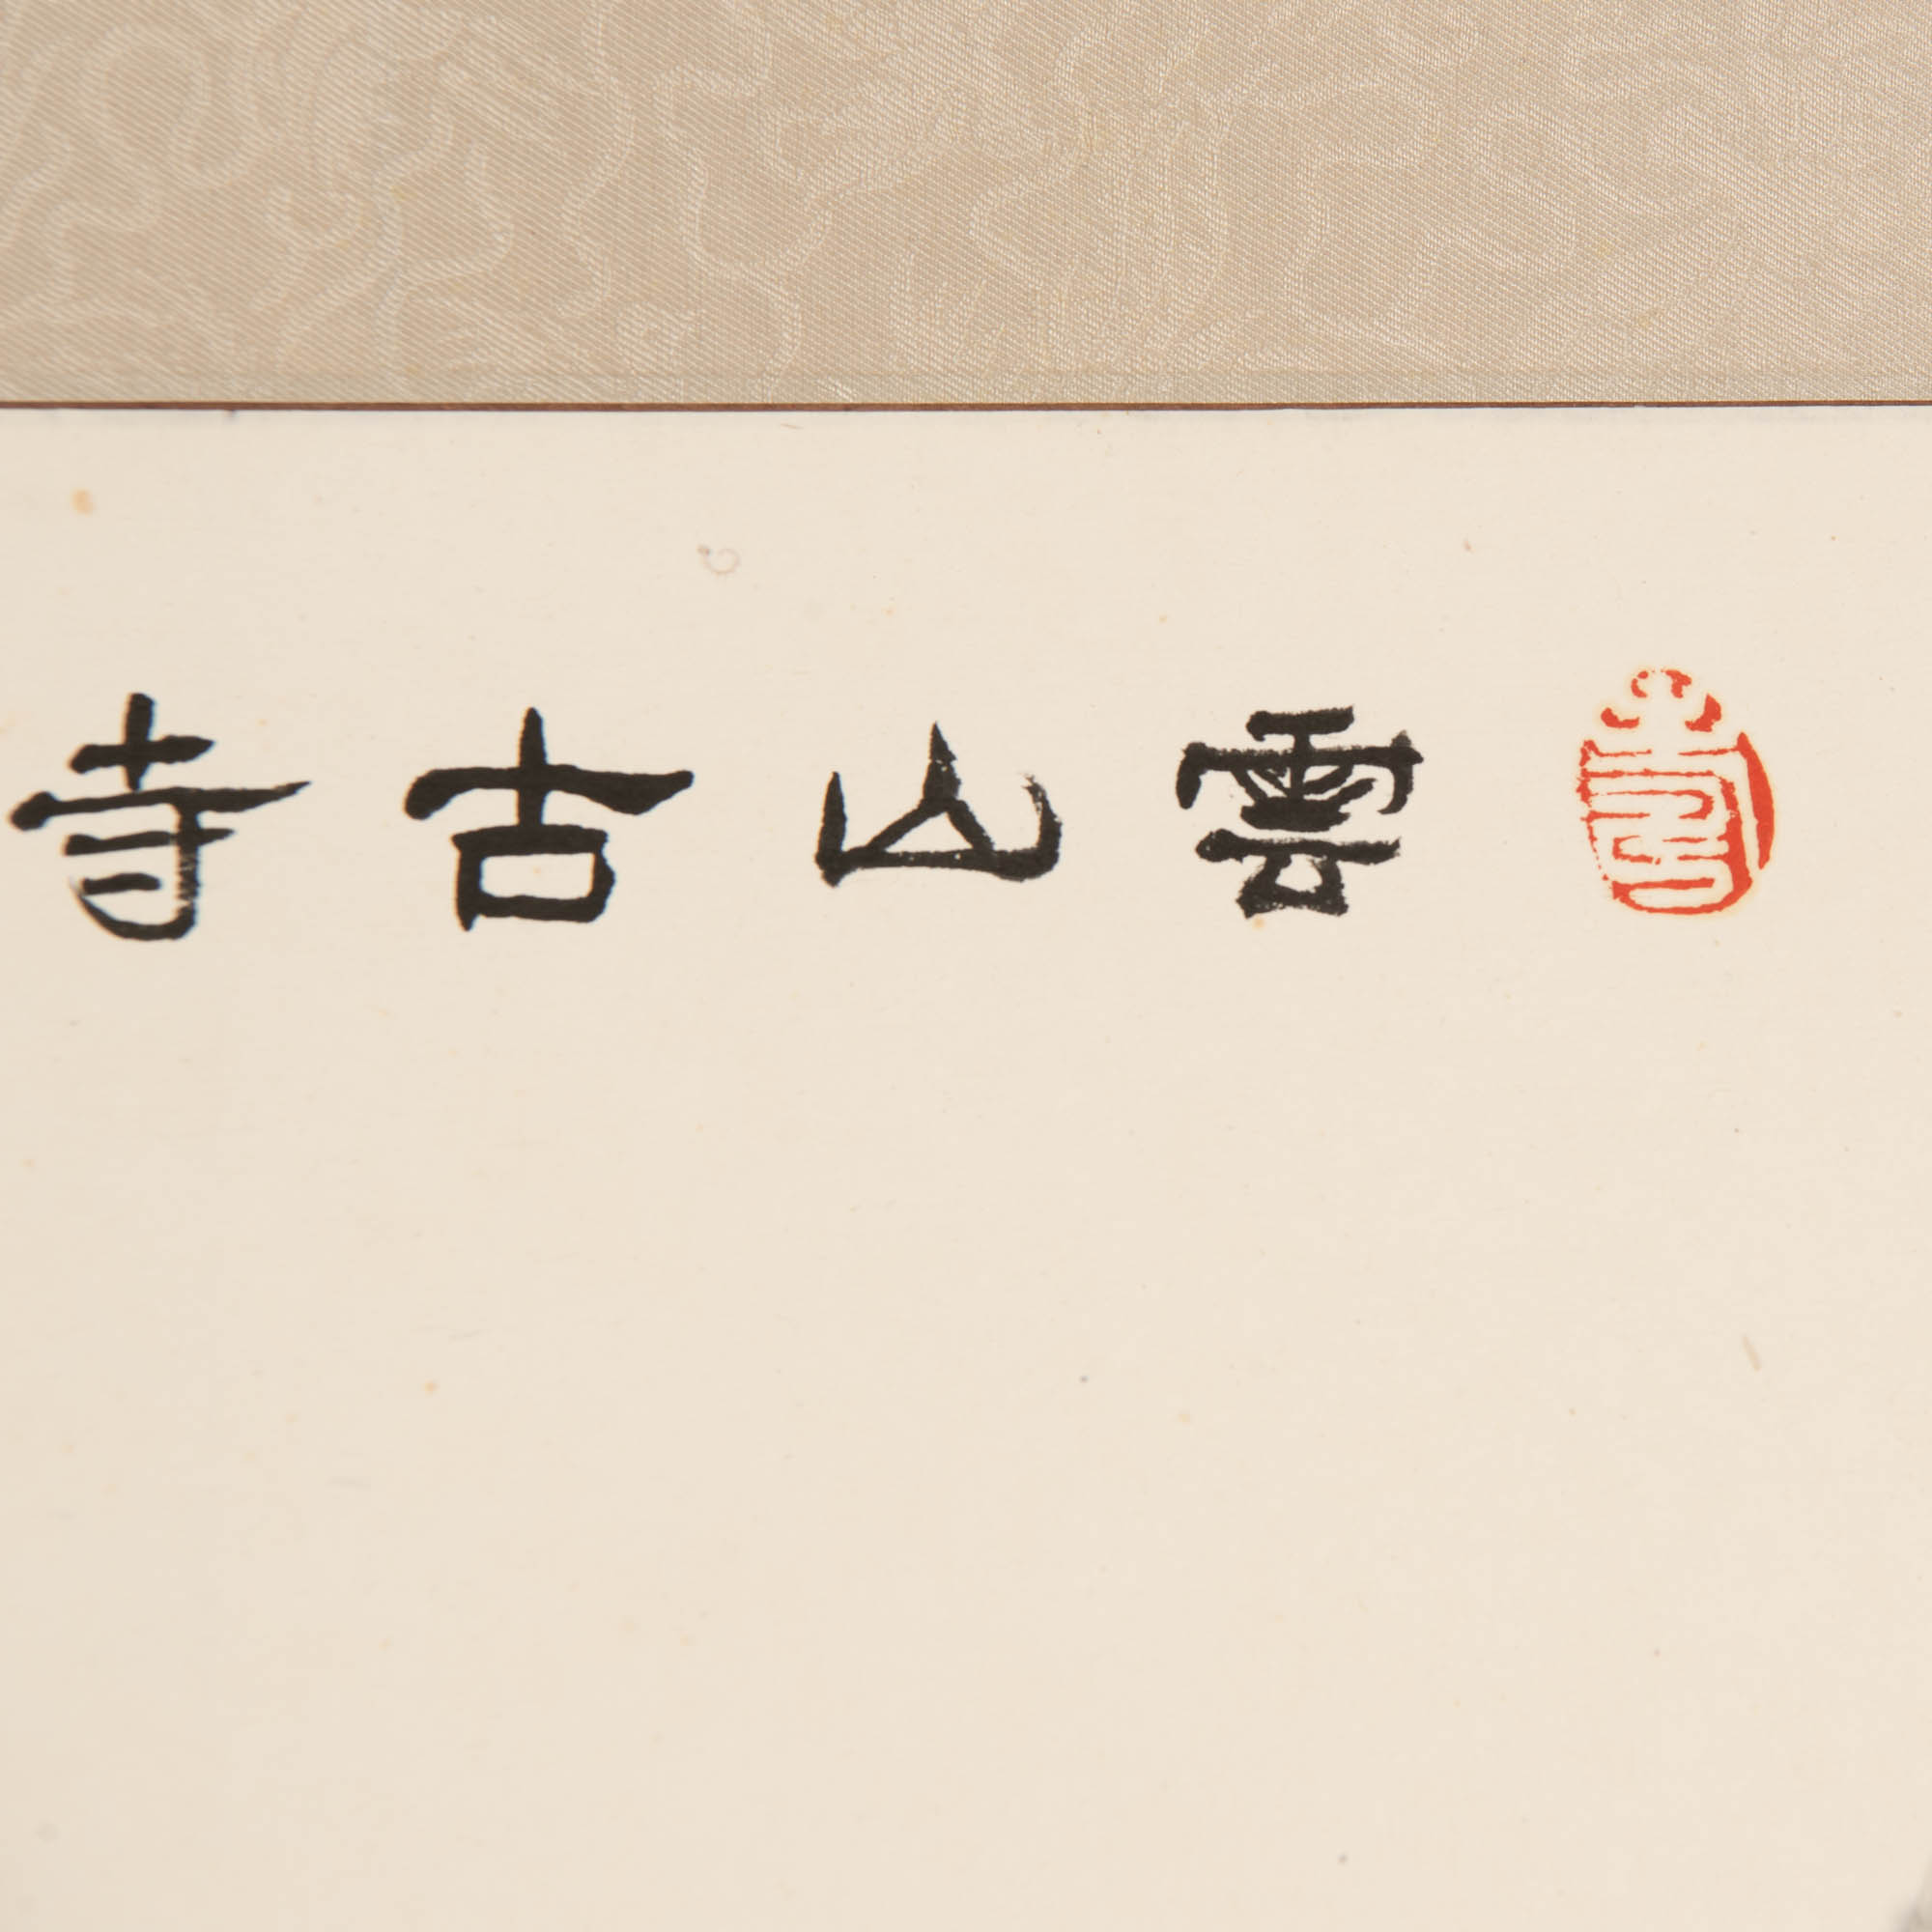 雲山古寺